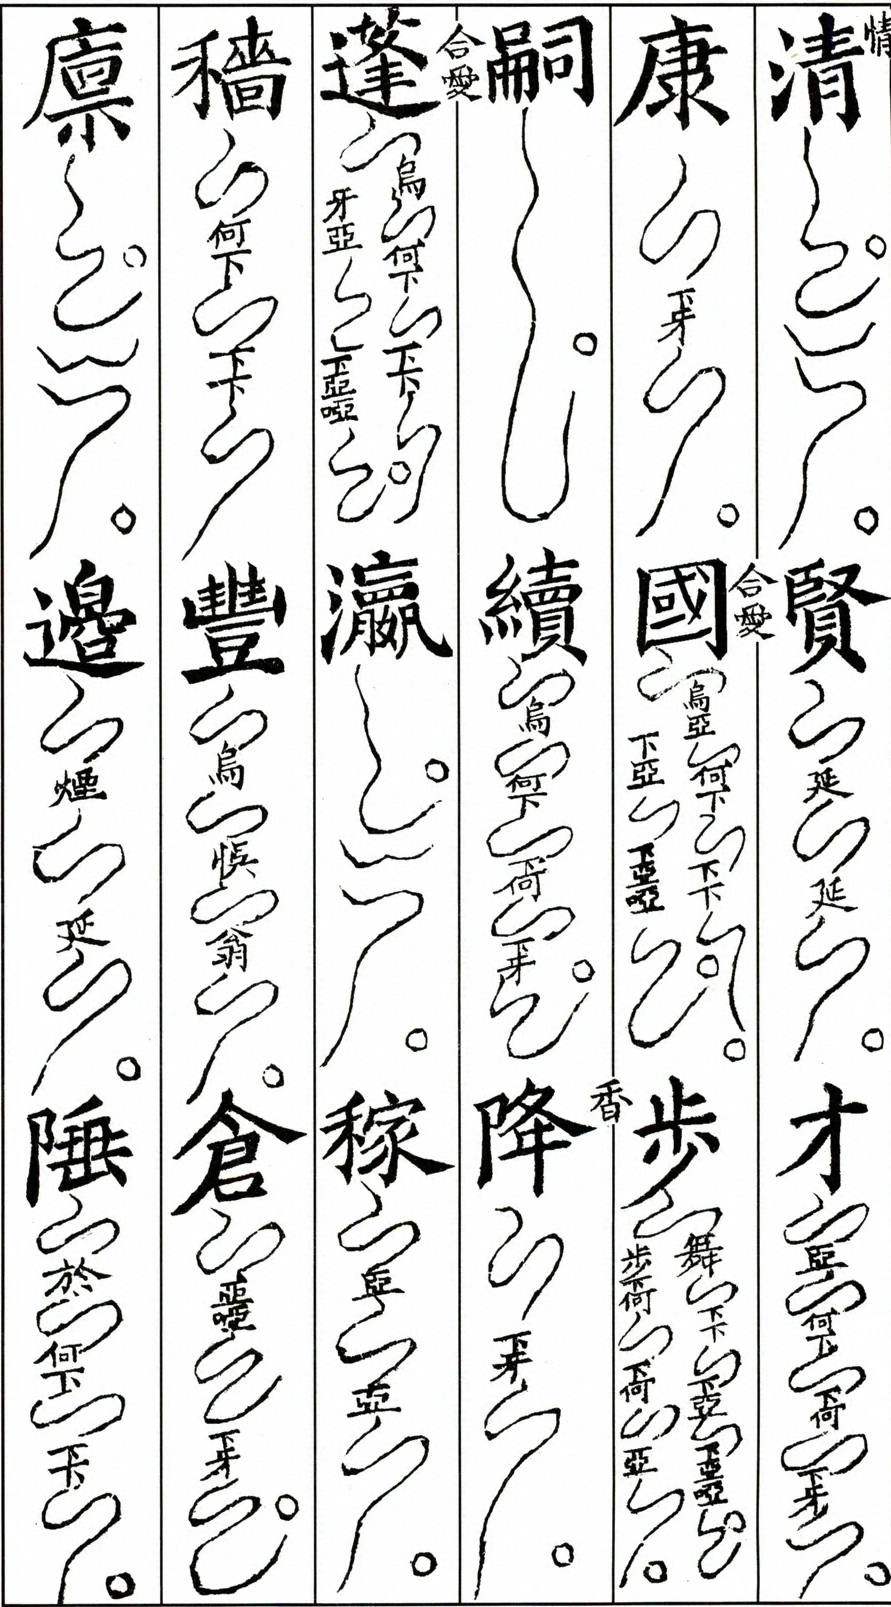 情
清
賢 延 延
才 亞 何下 下何 下牙
康 下牙
合愛
國 烏亞 何下 下下 下亞 下亞啞
步 舞 下下 下亞 下亞啞 步下何 下何 亞
嗣
續 烏 何下 下何 下牙
香
降 下牙
合愛
蓬 烏 何下 下下 牙亞 下亞啞
瀛
稼 亞 亞
穡 何下 下下
豐 烏 悞 翁
倉 亞啞 下牙
廩
邊 煙 延
陲 於 何下 下下